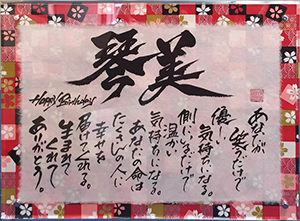 琴美
Happy Birthday
あなたが
笑うだけで
優しい気持ちになる。
側にいるだけで
温かい
気持ちになる。
あなたの命は
たくさんの人に
幸せを
届けてくれる。
生まれて
くれて
ありがとう。